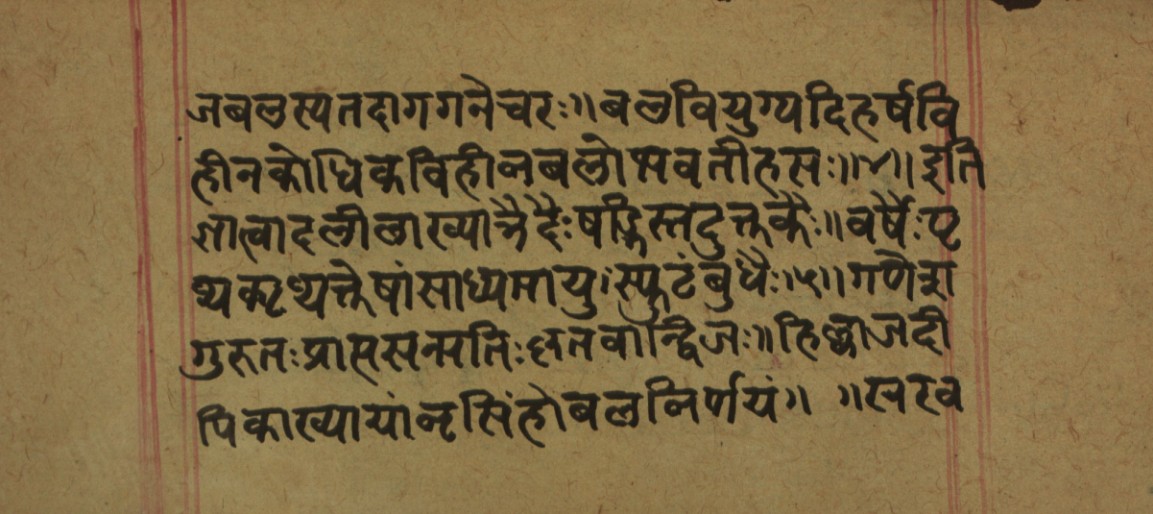 जबलस्यतदागगनेचरः॥बलवियुग्यदिहर्षवि
हीनकोधिकविहीनबलोभवतीहसः॥४॥इति
ज्ञात्वादलीलाख्यान्त्रैदैःषड्भिस्तदुक्तकैः॥वर्षैःपृ
थ्यकपृथ्यक्तेषांसाध्यमायुःस्फुटंबुधैः॥५॥गणेशा
गुरुतःप्राससन्मतिःछतवान्द्विजः॥हिल्लाजदी
पिकाख्यायांनृसिंहोबलनिर्णयं॥ ॥स्वरव